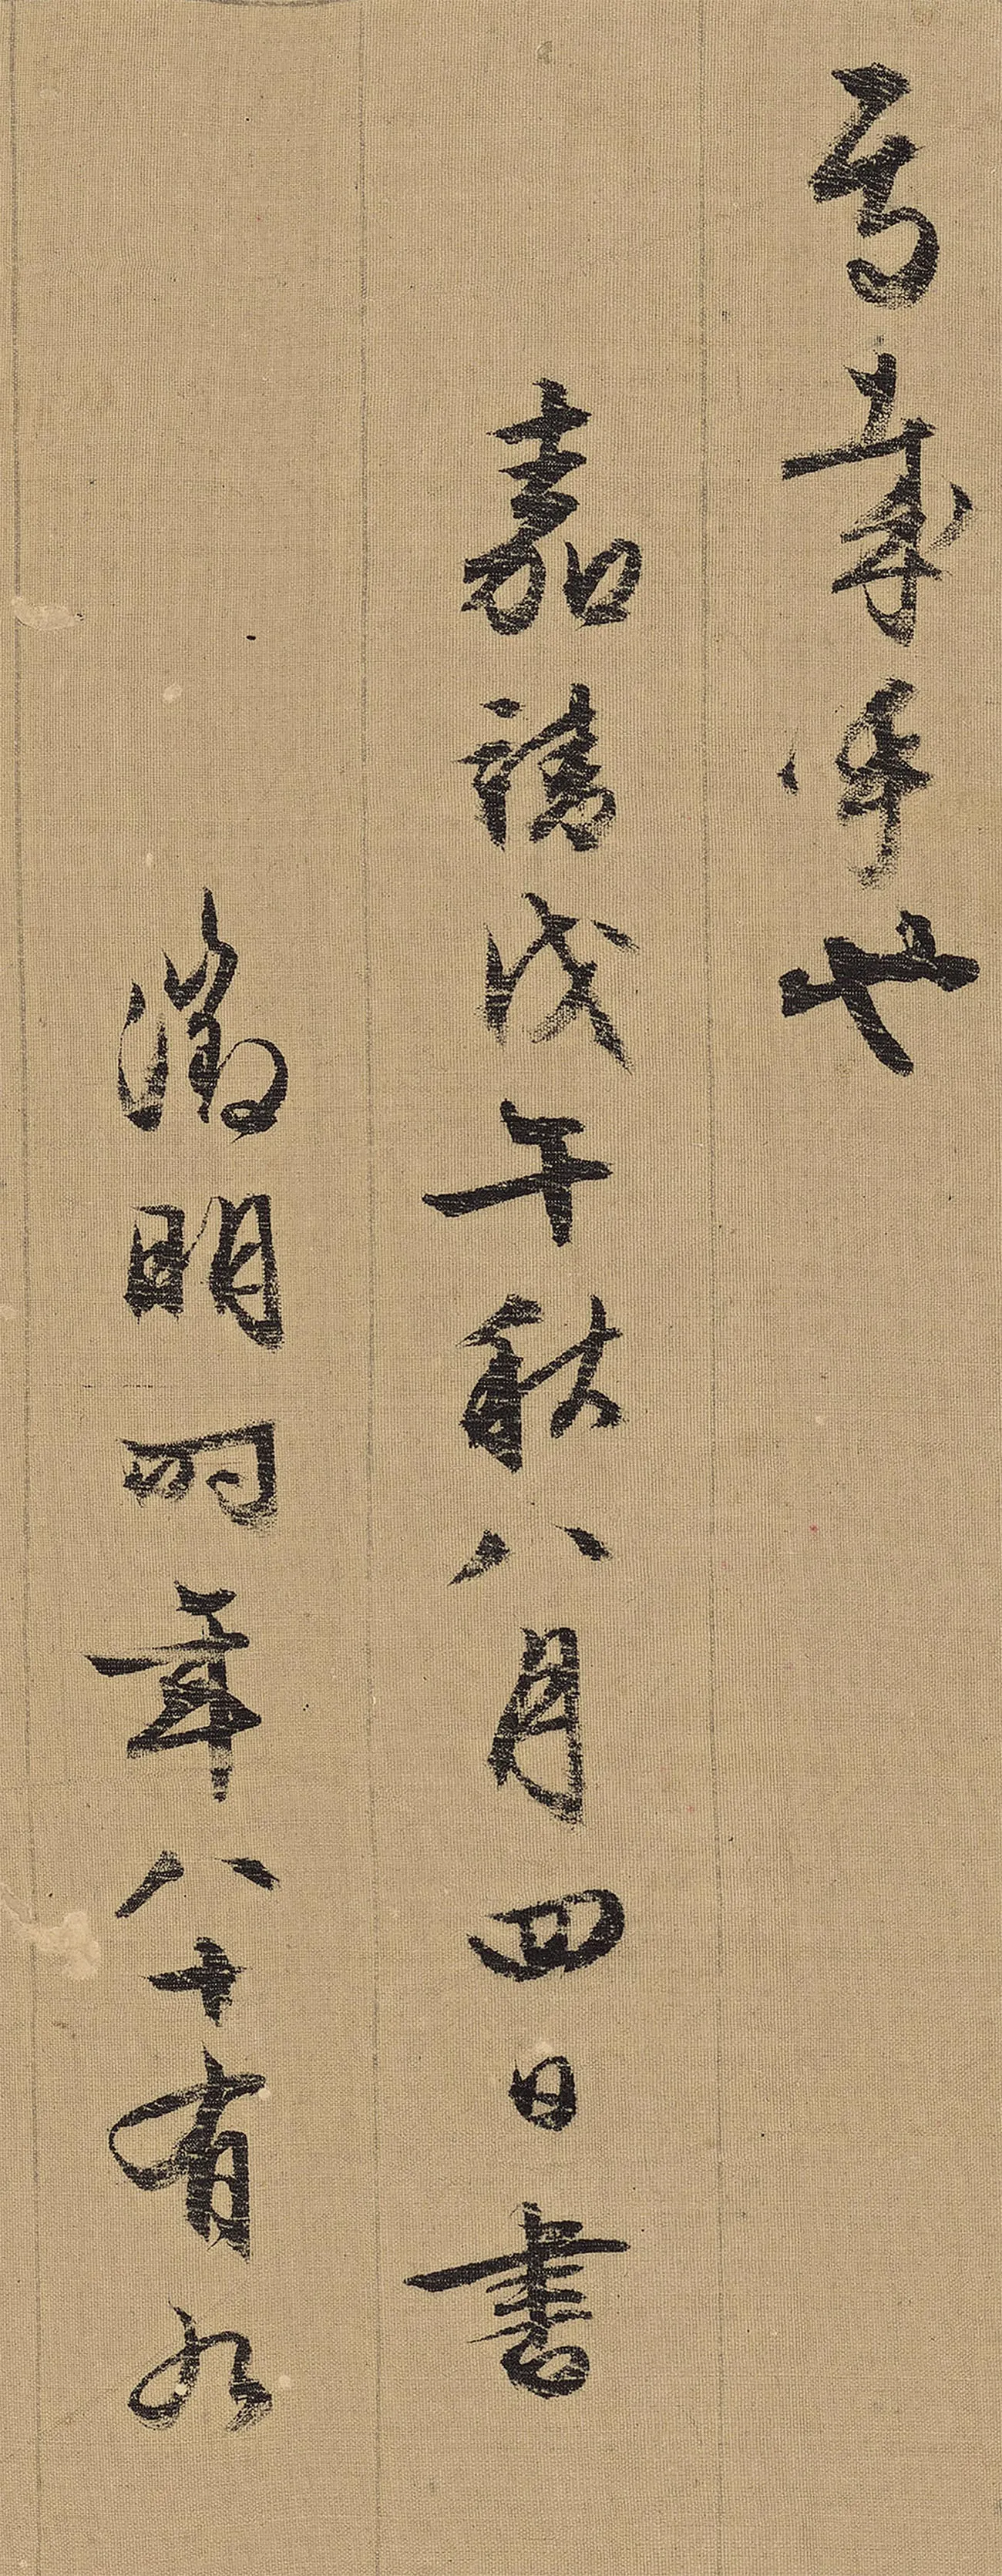 也
嘉靖戊午秋八月四日書
徵明時年八十有九